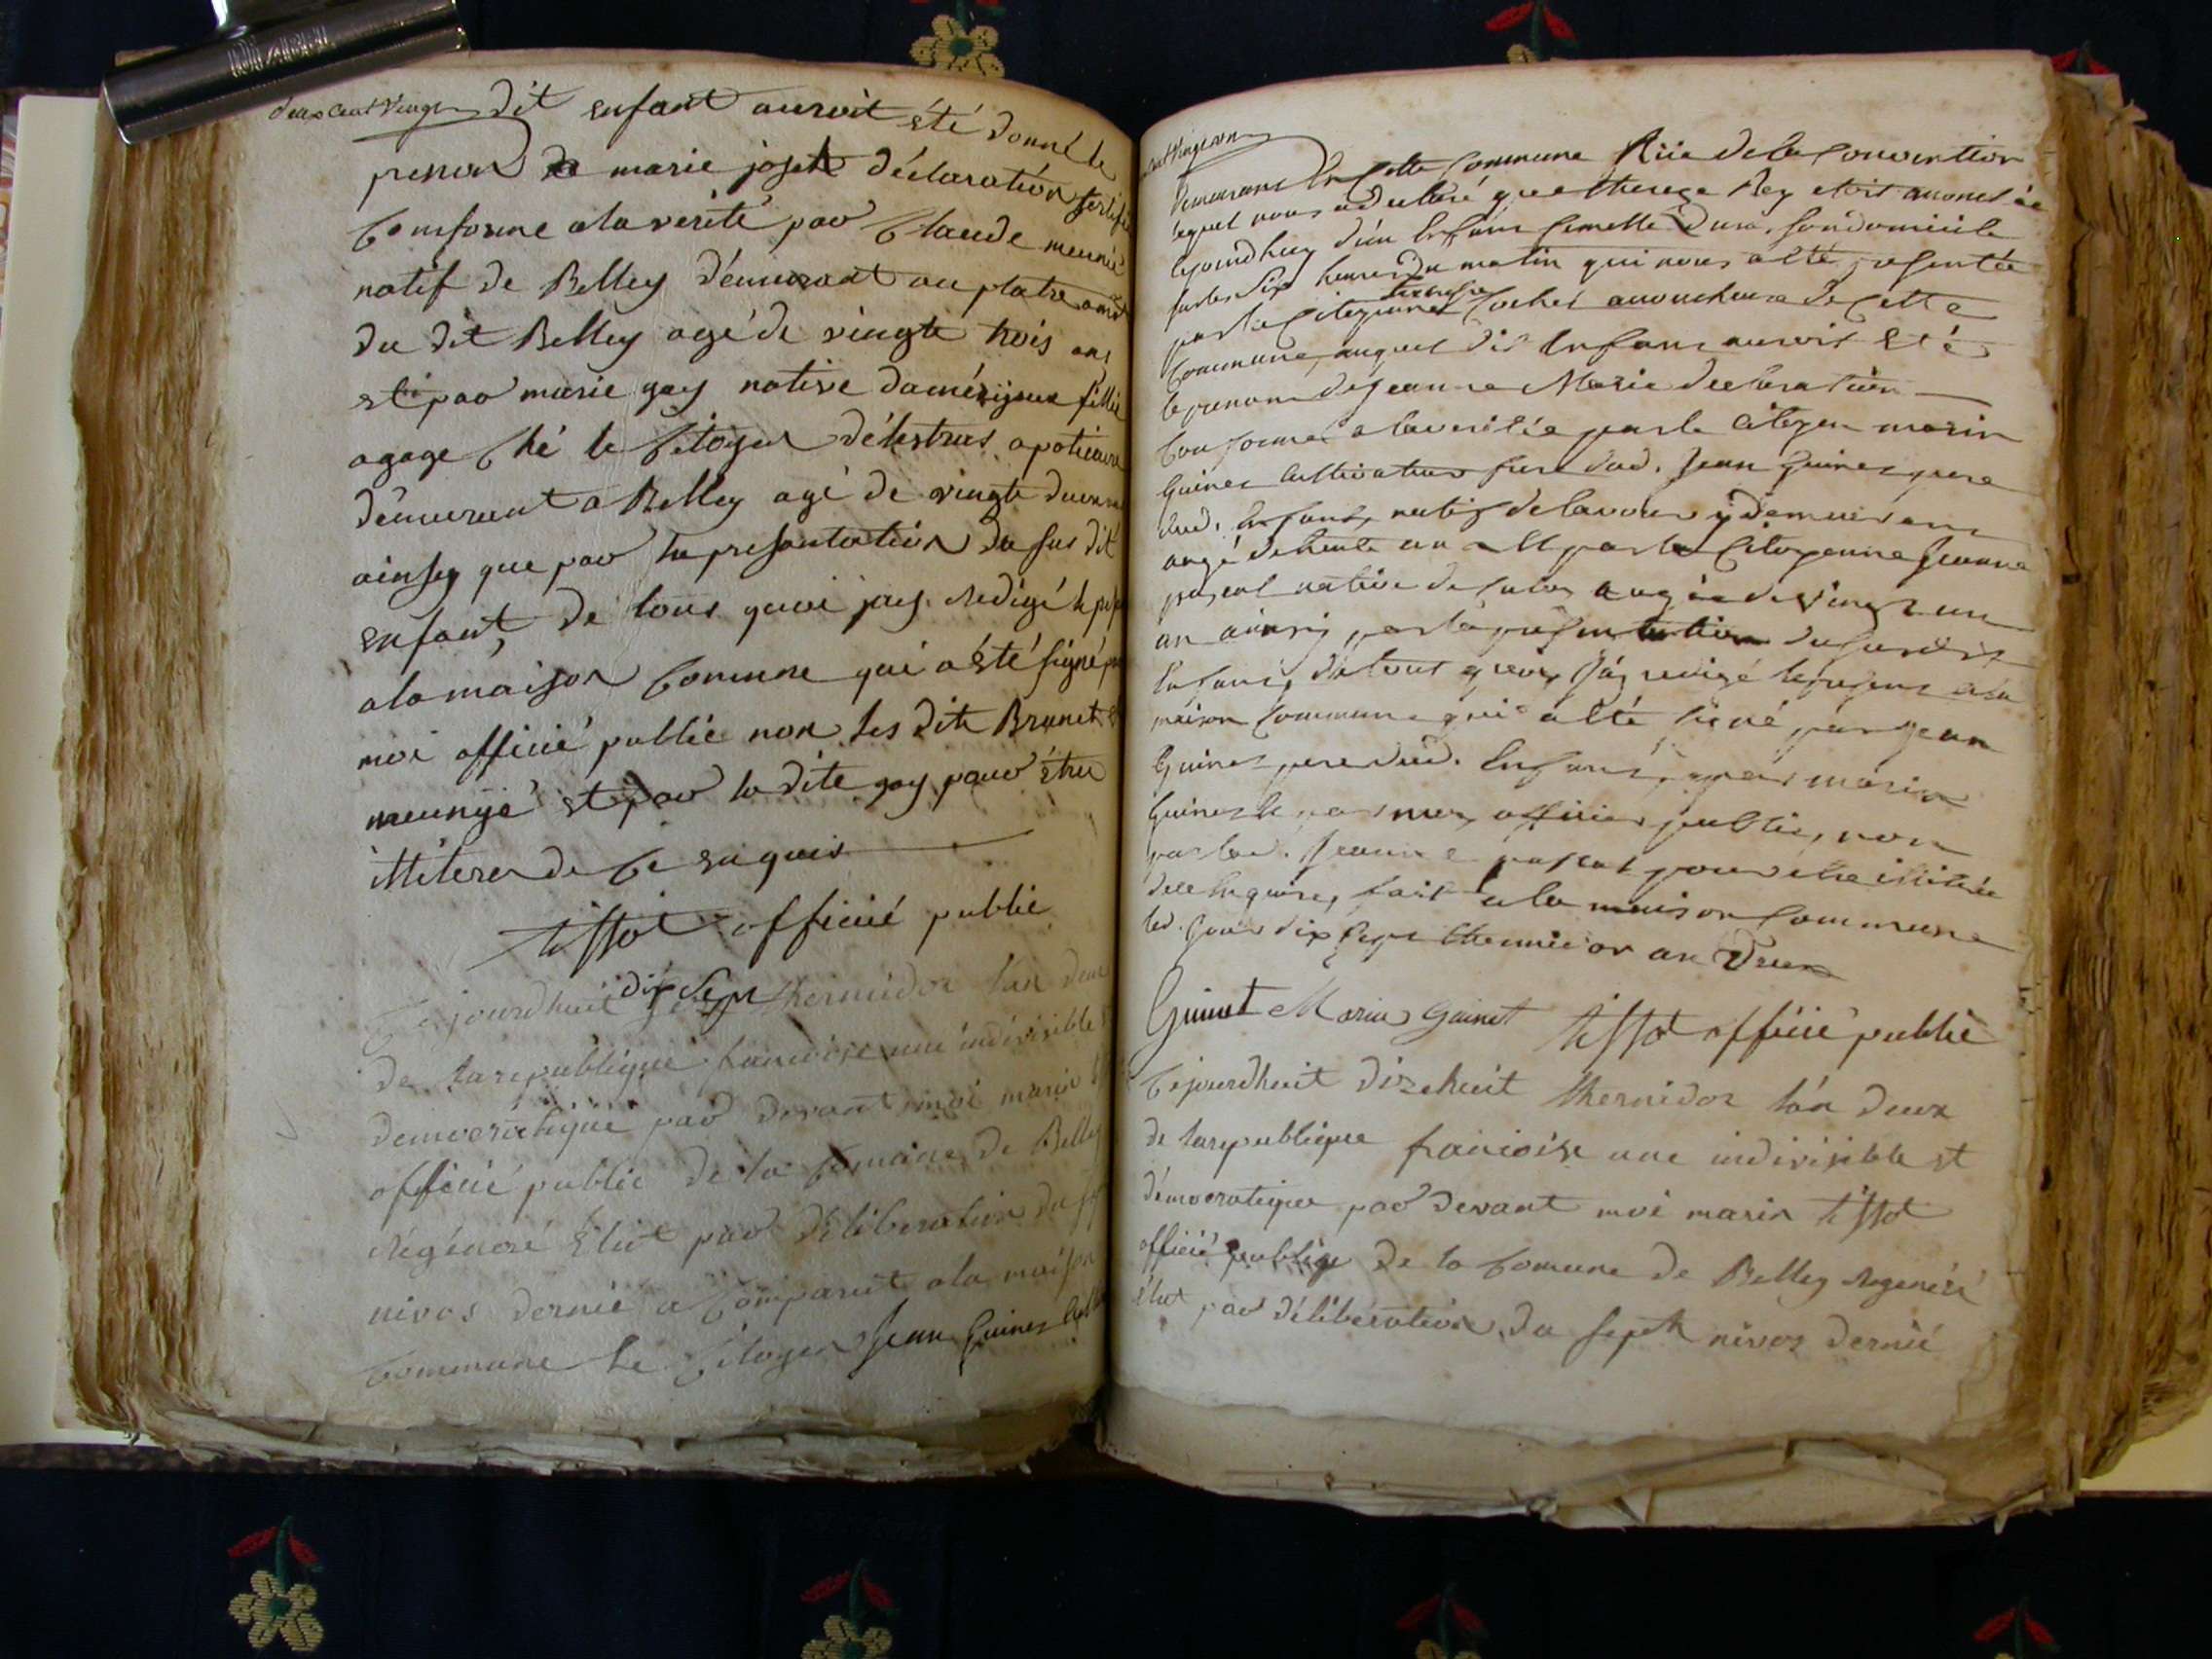 deux cent vingt
dit enfant auroit été donné le
prenon de marie joseh déclaration sertifié
Conforme a la verité par Claude meunié
natif de Belley démurant au platre
du dit Belley agé de vingte trois ans
et par marie gay native daméziyeux fillie
agage Ché le Citoyen délestras apoticaire
démurant a Belley agé de vingte
ainsy que par la presantation du sus dit
enfant, de tous quoi jay redigé le
a la maison Comune qui a été signé
moi officié public non les dite Brunet
meunyé et par la dite gay pour étre
illiteré de Ce enquis
tissot officié public
Cejourdhuit dix sept thermidor lan deux
de la republique francoise une indivisible
democratique par devant moi marin
officié public de la Comune de Belley
régénéré élut par délibération du
nivos dernié a Comparut a la maison
Commune le Citoyen Jean Guinet
cent vingt un
demeurant En Cette Commune Rüe de la Convention
lequel nous a declaré que therese Rey etoit acouchée
cejourdhuy d'un Enfant femelle dans son domicile
sur les six heures du matin qui nous a été presentée
par la Citoyenne Cochet acoucheuse de Cette
Commune, auquel dit Enfant auroit été
le prenom de Jeanne Marie declaration
Conforme a la verité par le Citoyen marin
Guinet Cultivateur frere dud. Jean Guinet pere
dud. Enfant, natif de lavour y demeurant
angé de trente un et par la Citoyenne Jeanne
pascal native de angée de vingt un
an ainsy par la presentation du susdit
Enfant, de tout quoy J'ay redigé le present a la
maison Commune qui a été signé par Jean
Guinet pere dud. Enfant, par marin
Guinet et par moy officier public, non
par lad. Jeanne pascal pour etre illiterée
de ce Enquise, fait a la maison Commune
led. Jour dix sept thermidor an deux
Guinet Marin Guinet tissot officié public
Cejourdhuit dix huit thermidor lan deux
de la republique francoise une indivisible et
démocratique par devant moi marin tissot
officié publige de la Comune de Belley regeneré
élut par délibération du septh nivos dernié